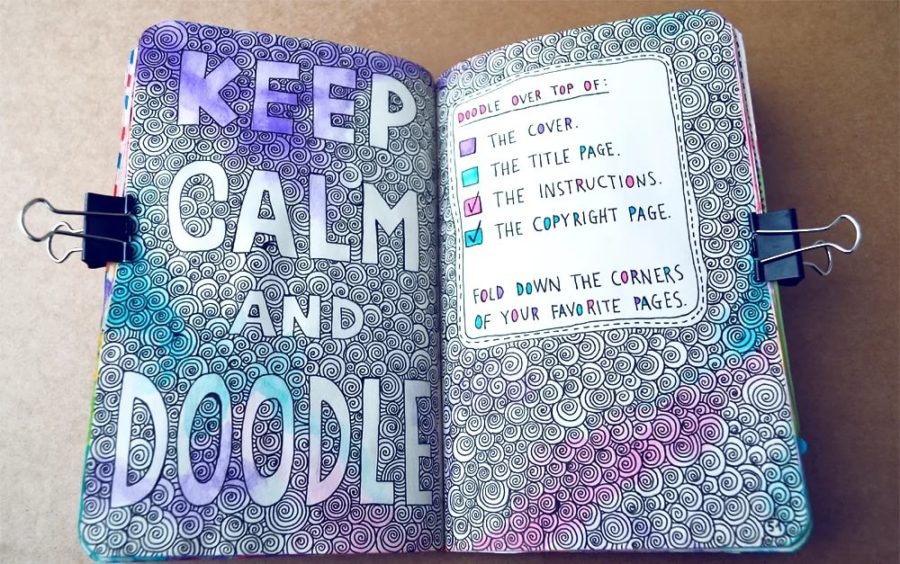 KEEP
CALM
AND
DOODLE
DOODLE OVER TOP OF:
THE COVER.
THE TITLE PAGE.
THE INSTRUCTIONS.
THE COPYRIGHT PAGE.
FOLD DOWN THE CORNERS
OF YOUR FAVORITE PAGES.
51